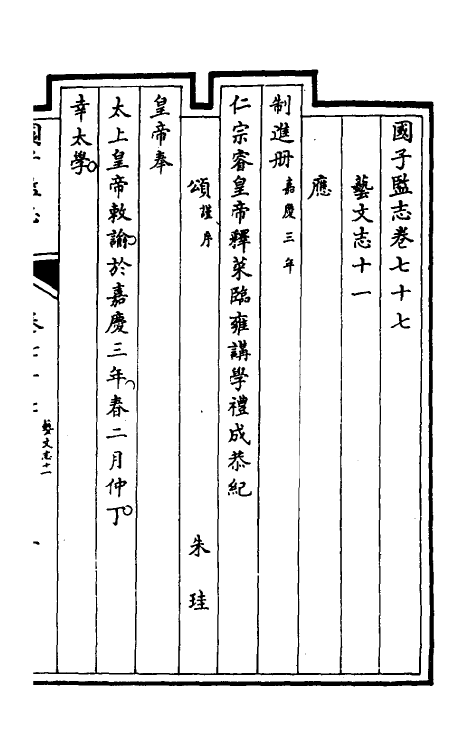 國子監志卷七十七
藝文志十一
應
制進册 嘉慶三年
仁宗睿皇帝釋菜臨雍講學禮成恭紀
頌 謹序 朱珪
皇帝奉
太上皇帝敕諭於嘉慶三年春二月仲丁
幸太學
國子監志 卷七十七 藝文志十一 一